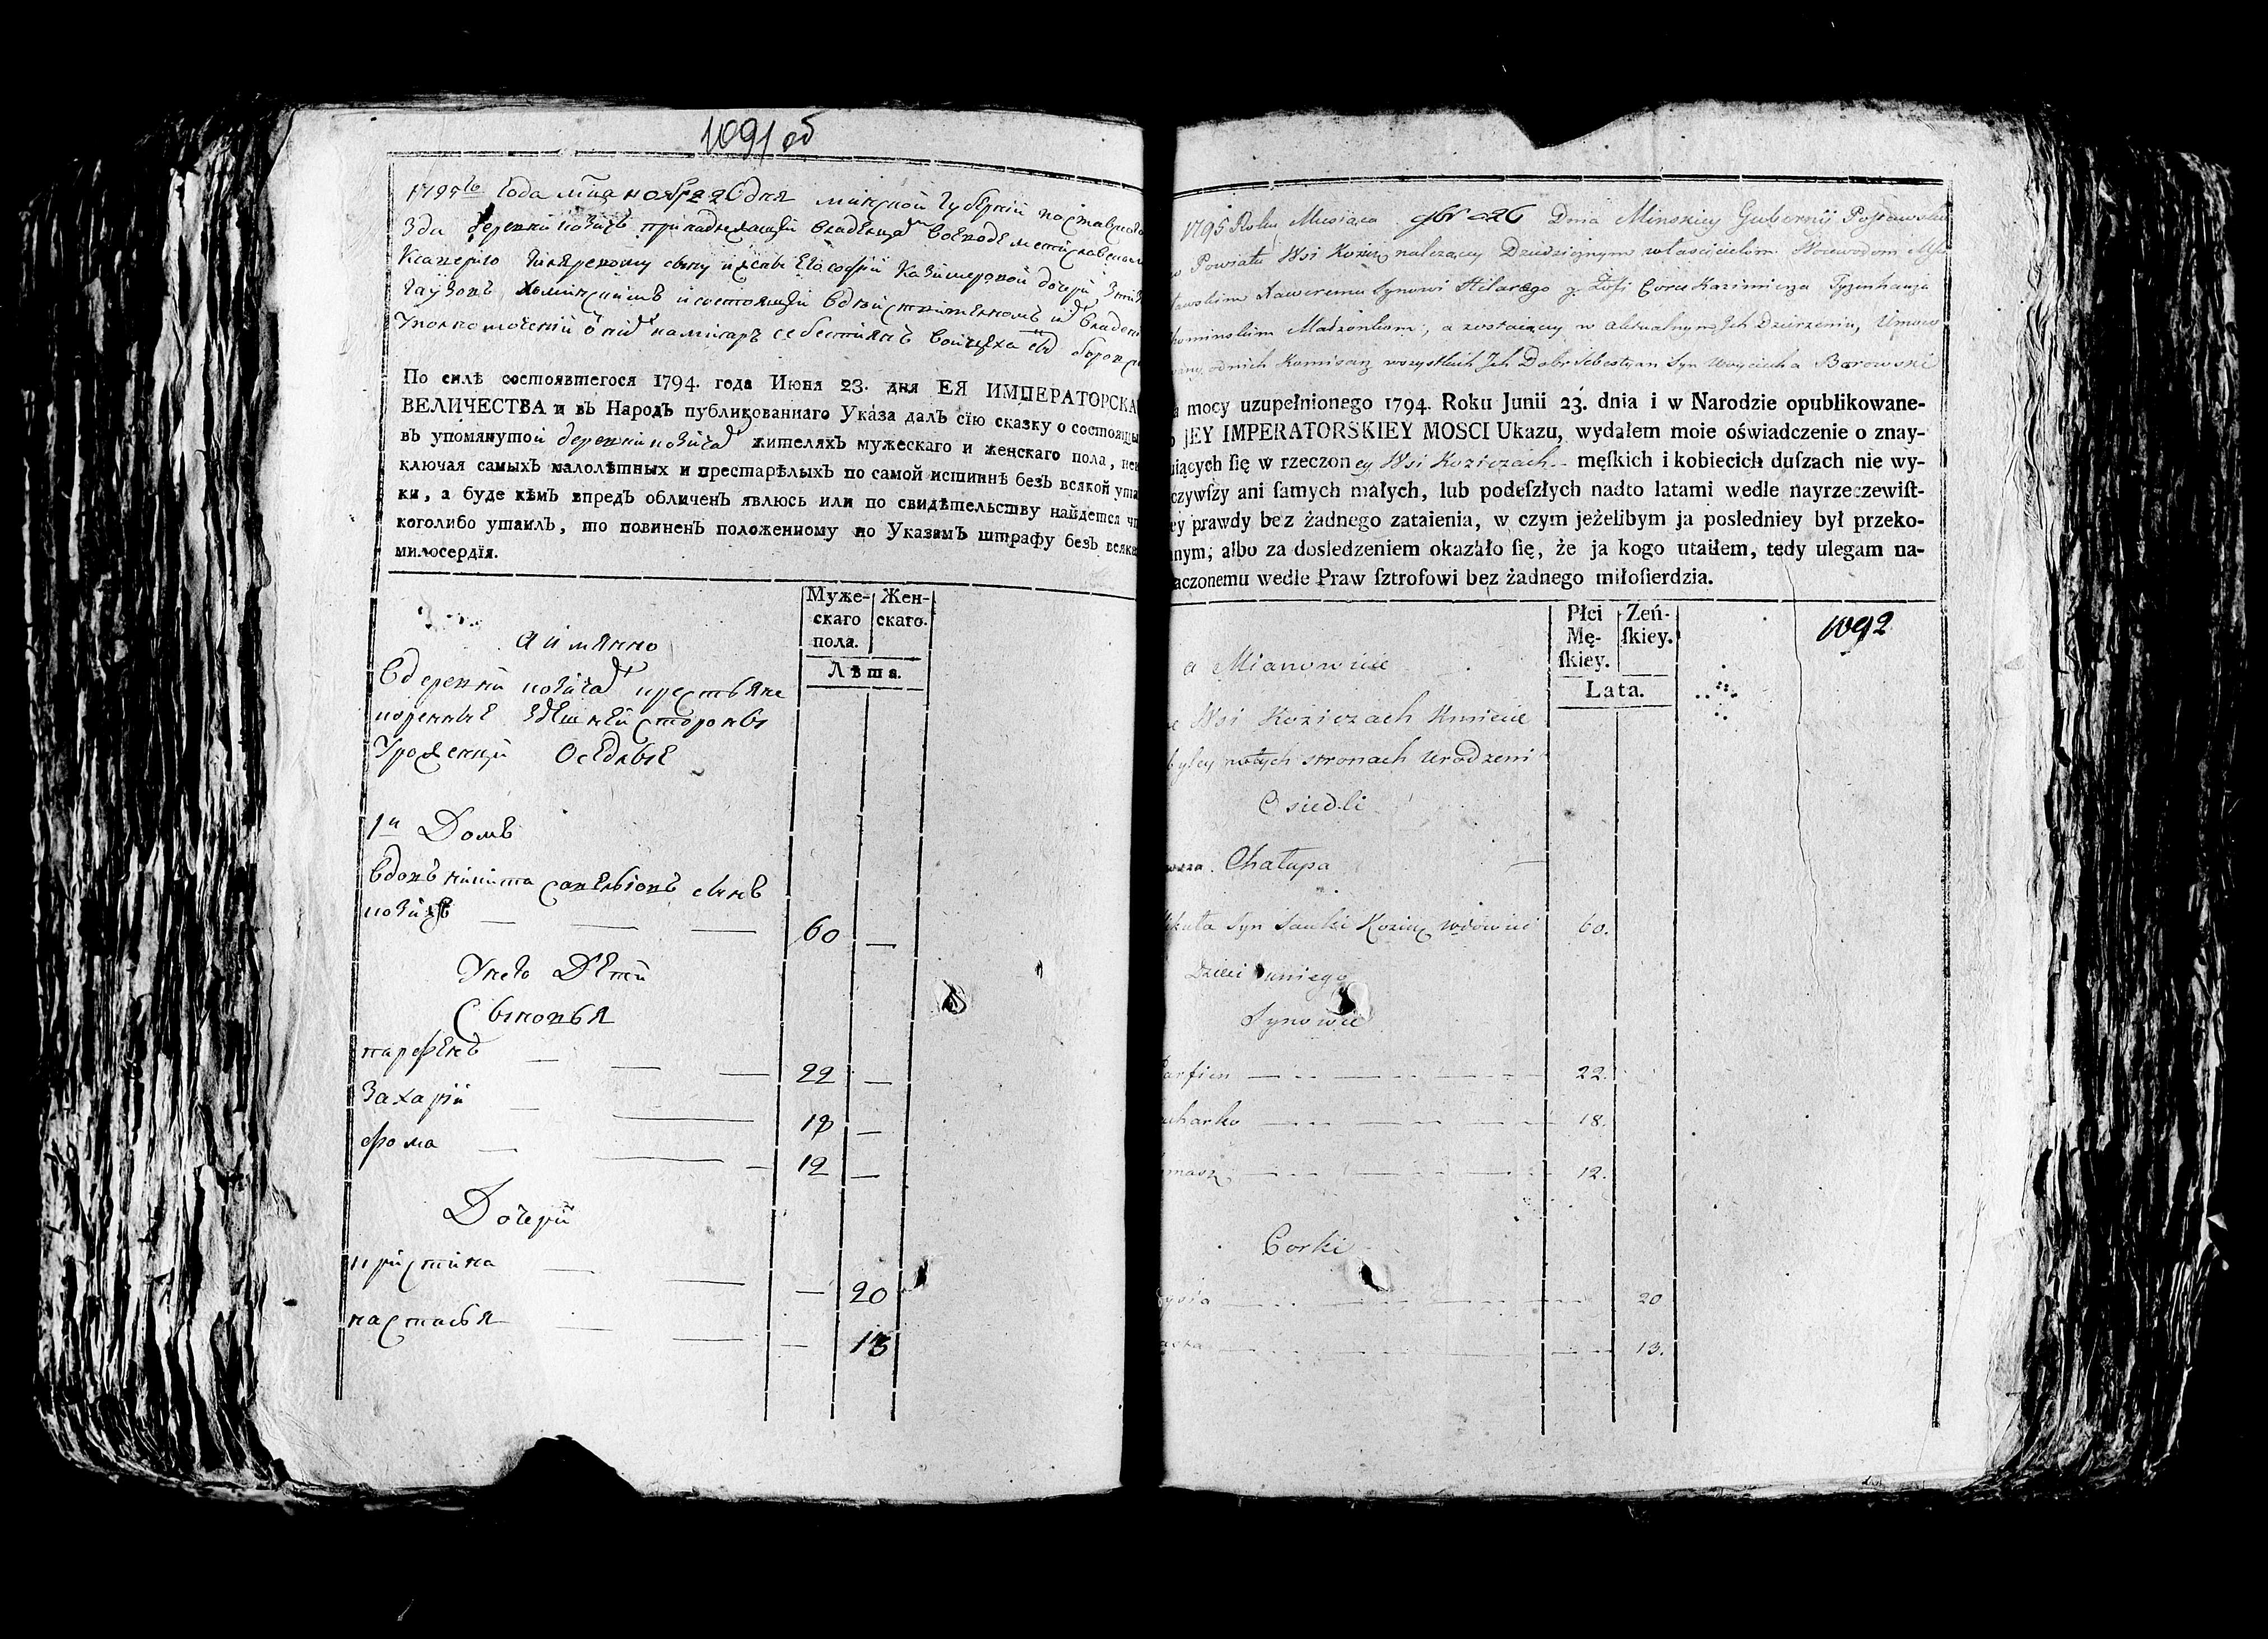 1091 об
1795го Года мца ноября 26 дня минской Губернии поставского
деревни козич принадлежащей
сыну и жены Его софии Казимеровой дочери
и состоящей в
камисар себестиян войцеха
По силѣ состоявшегося 1794. года Июня 23. дня ЕЯ ИМПЕРАТОРСКА
ВЕЛИЧЕСТВА и въ Народъ публикованнаго Указа далъ сїю сказку о состоящы
въ упомянутой деревни козичах жителяхъ мужескаго и женскаго пола, неи
ключая самыхъ малолѣтных и престарѣлыхъ по самой истиннѣ безъ всякой ута
ки, а буде кѣмъ впредъ обличенъ явлюсь или по свидѣтельству найдется чт
коголибо утаилъ, то повиненъ положенному по Указамъ штрафу безъ всяка
милосердїя.
Муже- Жен-
скаго скаго.
пола.
Лѣта.
а имянно
В деревни козичах крестьяне
коренные здешней стороны
Уроженцы Оседлые
1й Домъ
вдовъ никита савельевъ сынъ
козичъ 60
У него Дети
Сыновья
парфенъ 22
Захарий 18
фома 12
Дочери
кристина 20
настасья 13
1795 Roku Miesiąca 9br 26 Dnia Minskiey Gubernij Postawsku
Powiatu Wsi Kozicz nalezącey Dziedzicznym właścicielom Woiewodom Mści
Xaweremu Synowi Hilarego y Zofi Corce Kazimierza Tyzenhauza
Chominskim Małżonkom, a zostaiącey w aktualnym Jch Dzierzeniu, Umoco
od nich Komisarz wszystkich Jch Dobr Sebestyan Syn Woyciecha Borowski
a mocy uzupełnionego 1794. Roku Junii 23. dnia i w Narodzie opublikowane-
o JEY IMPERATORSKIEY MOSCI Ukazu, wydałem moie oświadczenie o znay-
uiących ſię w rzeczoney Wsi Koziczach męſkich i kobiecich duſzach nie wy-
czywſzy ani ſamych małych, lub podeſzłych nadto latami wedle nayrzeczewiſt-
ey prawdy bez żadnego zataienia, w czym jeżelibym ja posledniey był przeko-
anym, albo za dosledzeniem okazało ſię, że ja kogo utaiłem, tedy ulegam na-
aczonemu wedle Praw ſztrofowi bez żadnego miłoſierdzia.
Płci Zeń-
Mę- ſkiey.
ſkiey.
Lata.
1092
a Mianowicie
Wsi Koziczach Kmiecie
w tych stronach urodzeni
Osiedli
Chałupa
Mikuta Syn Sawki Kozicz wdowiec 60.
Dzieci u niego
Synowie
Parfien 22.
acharko 18.
omasz 12.
Corki
20
13.